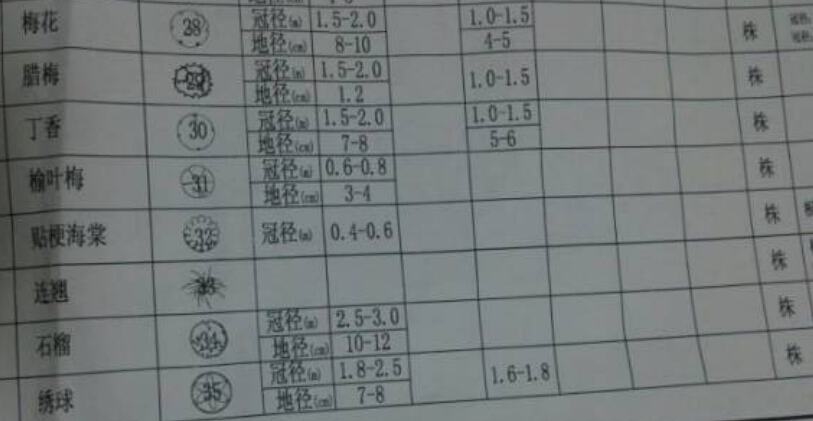 梅花 38 冠径(m) 1.5-2.0 1.0-1.5 株
地径(cm) 8-10 4-5
腊梅 冠径(m) 1.5-2.0 1.0-1.5 株
地径(cm) 1.2
丁香 30 冠径(m) 1.5-2.0 1.0-1.5 株
地径(cm) 7-8 5-6
榆叶梅 31 冠径(m) 0.6-0.8 株
地径(cm) 3-4
贴梗海棠 32 冠径(m) 0.4-0.6 株
连翘 株
石榴 34 冠径(m) 2.5-3.0 株
地径(cm) 10-12
绣球 35 冠径(m) 1.8-2.5 1.6-1.8 株
地径(cm) 7-8